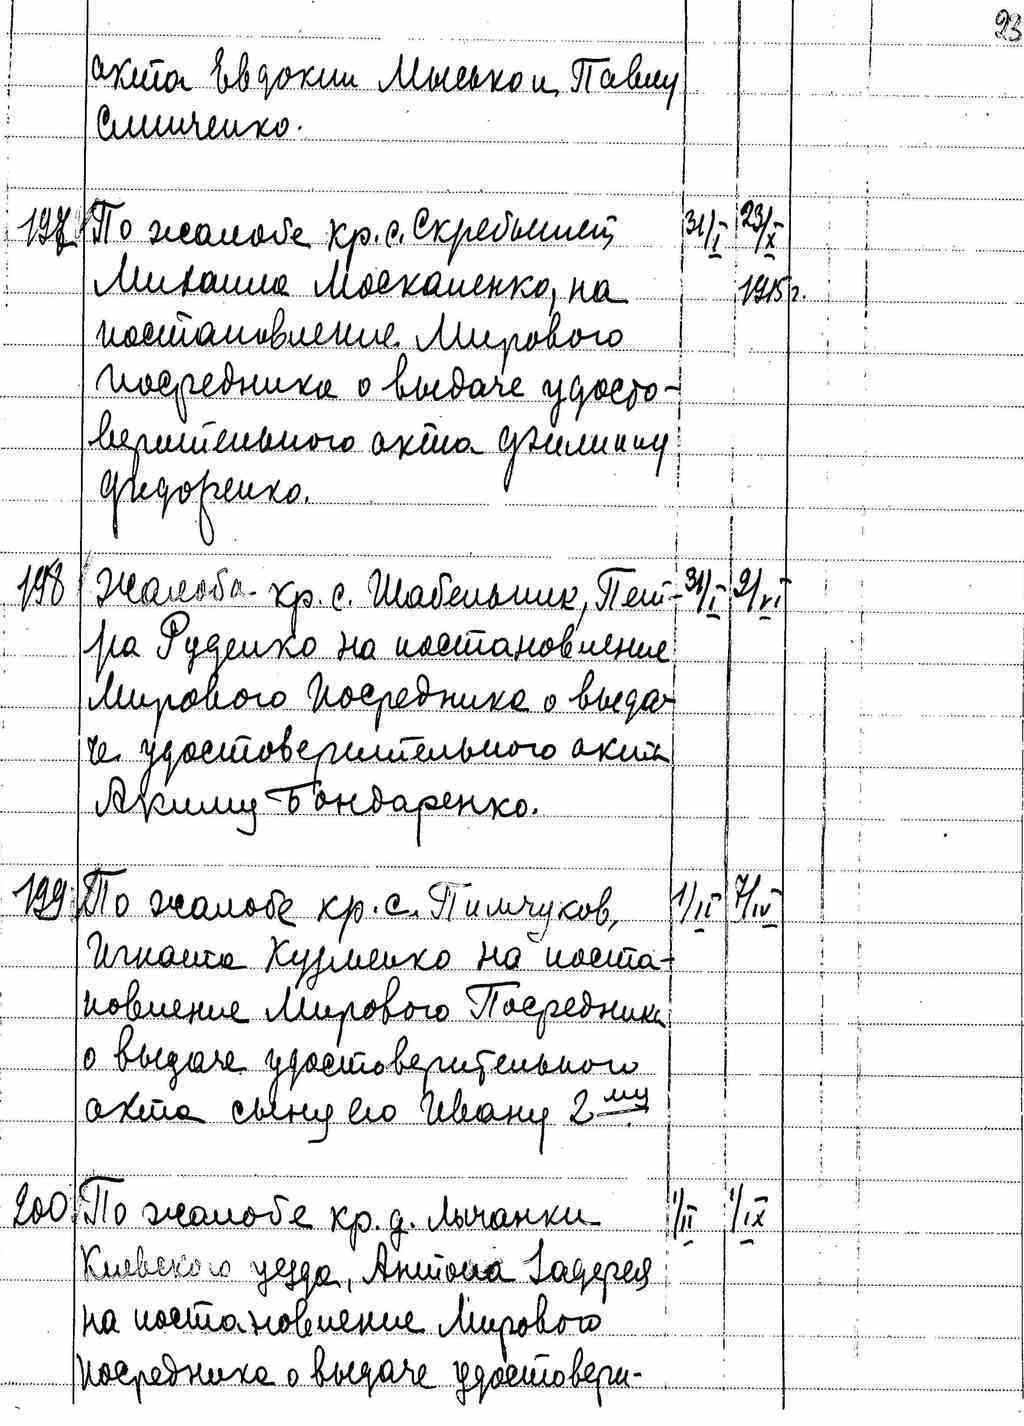 23
акта Евдокии Мысько и Павлу
Слинченко.
197 По жалобе кр. с. Скребышей, 31/I 23/X
Михаила Москаленко, на 1915 г.
постановление Мирового
посредника о выдаче удосто-
верительного акта Филиппу
Федоренко.
198 Жалоба кр. с. Шабельник, Пет- 31/I 2/VI
ра Руденко на постановление
Мирового Посредника о выда-
че удостоверительного акта
Акиму Бондаренко.
199 По жалобе кр. с. Пимчуков, 1/II 7/IV
Игната Кузменко на поста-
новление Мирового Посредника
о выдаче удостоверительного
акта сыну его Ивану 2му
200 По жалобе кр. д. Лычанки 1/II 1/IX
Киевского уезда, Антона Задерея
на постановление Мирового
посредника о выдаче удостовери-